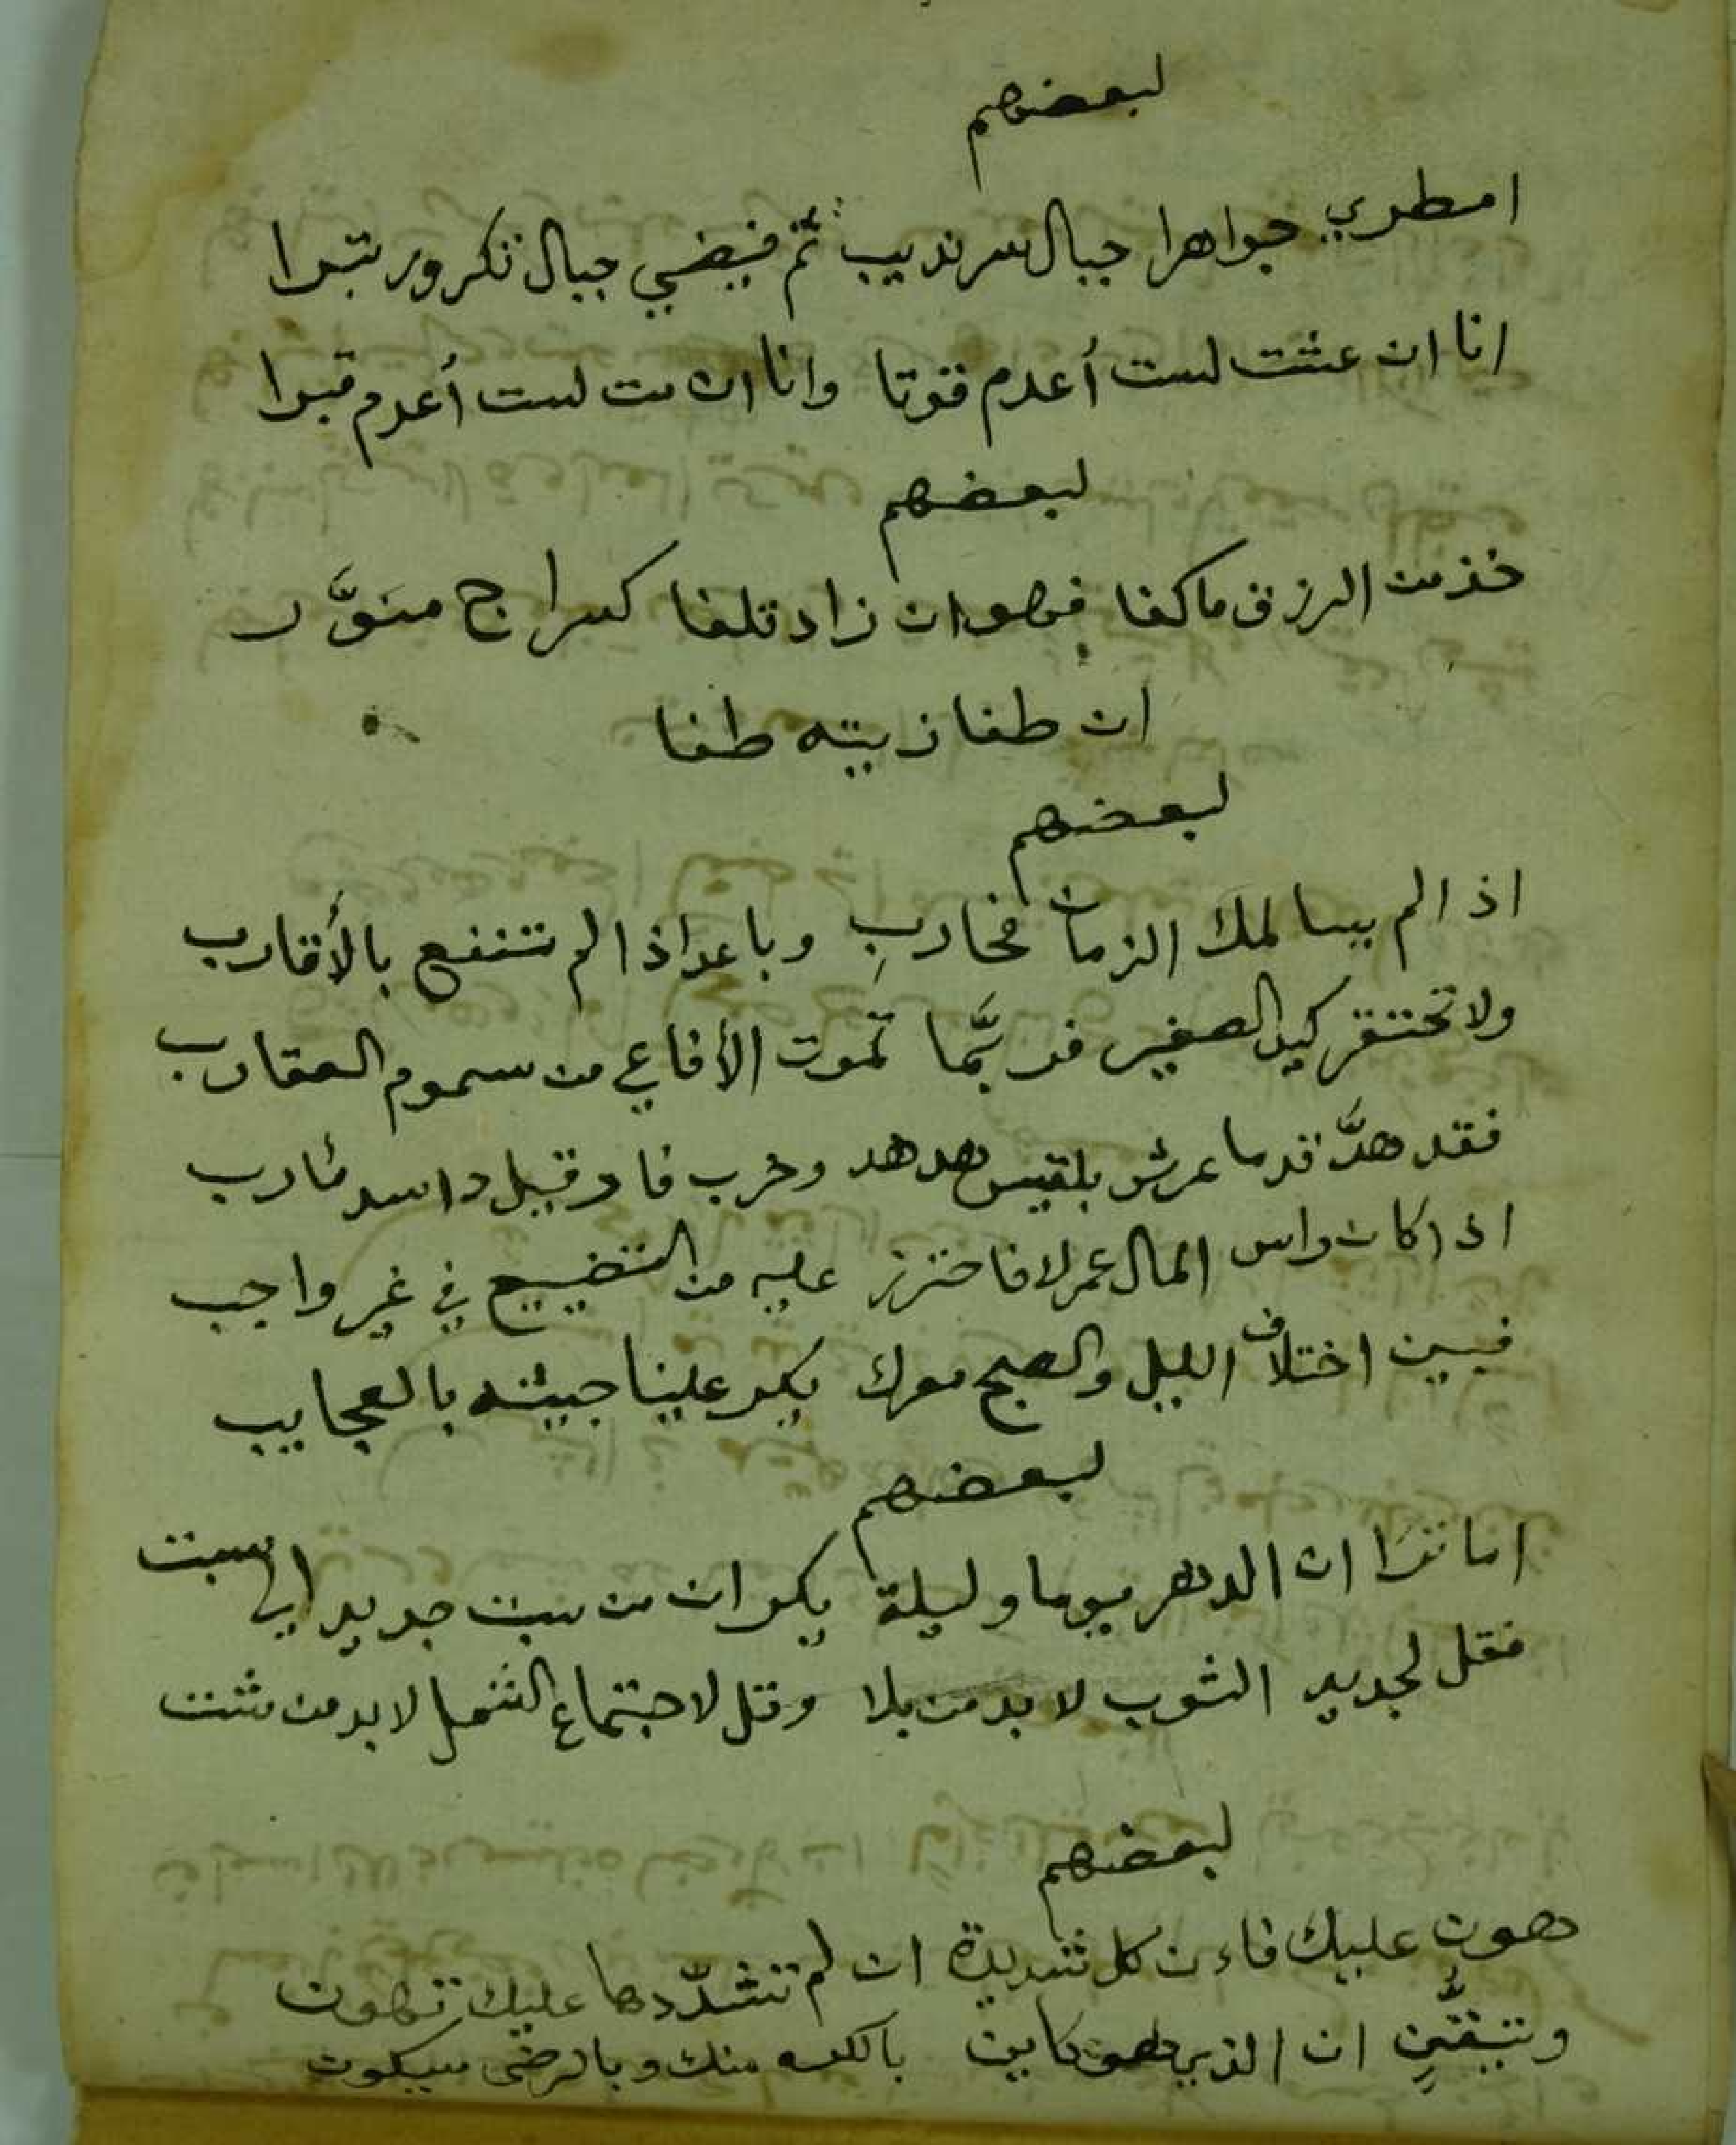 لبعضهم
امطري جواهرا جبال سرنديب ثم فيضي جبال تكرور تبرا
انا ان عشت لست أعدم قوتا وانا ان مت لست أعدم قبرا
لبعضهم
خذ من الرزق ما كفا فهو ان زاد تلفا كسراج منوَّر
ان طفا زيته طفا
لبعضهم
اذا لم يسالمك الزمان فحاربِ وباعد اذا لم تنتفع بالأقارب
ولا تحتقر كيد الصغير فربَّما تموت الأفاعي من سموم العقارب
فقد هدَّ قدما عرش بلقيس هدهد وخرب فار قبل ذا سد مارب
اذا كان راس المال عمرك فاحترز عليه من التضييع في غير واجب
فبين اختلاف الليل والصبح معرك يكر علينا جيشه بالعجايب
لبعضهم
اما ترَا ان الدهر يوما وليلة يكران من سبت جديد الى سبت
فقل لجديد الثوب لا بد من بلا وقل لاجتماع الشمل لا بد من شتت
لبعضهم
هون عليك فاءن كل شديدة ان لم تشدّدها عليك تهون
وتيقَّنِ ان الذي هو كاين بالكره منك وبالرضى سيكون